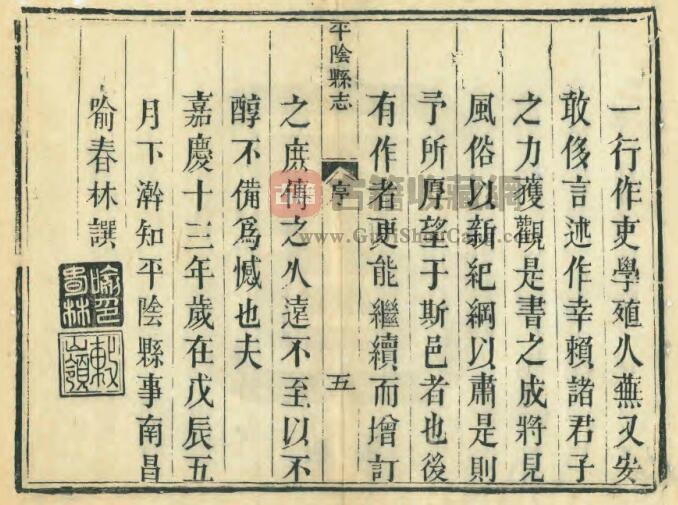 一行作吏學殖久蕪又安
敢侈言述作幸賴諸君子
之力獲觀是書之成將見
風俗以新紀綱以肅是則
予所厚望于斯邑者也後
有作者更能繼續而增訂
平陰縣志
序
五
之庶傳之久遠不至以不
醇不備爲憾也夫
嘉慶十三年歲在戊辰五
月下澣知平陰縣事南昌
喻春林譔
喻春林印
古籍
古籍收藏網